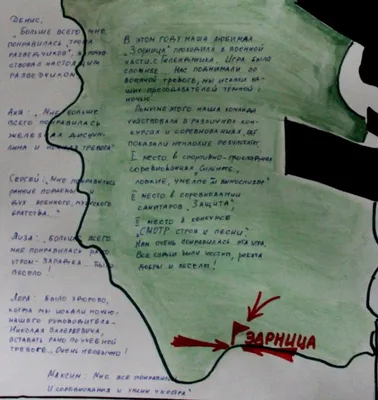 Денис:
„Больше всего мне
понравилась „тропа
разведчиков",
ствовал настоящим
разведчиком
Аха: „Мне больше
всего понравилась
железная дисцип-
лина и ночная тревога"
Сергей: „Мне понравились
ранние подъемы и
дух военного, мужского
братства..."
Лиза: „Больше всего
мне понравилась
утром-зарядка. Было
весело!
Лера: Было здорово,
когда мы искали ночью
нашего руководителя-
Николая Валерьевича,
вставать рано по учебной
тревоге... Очень необычно!
Максим: Мне все понравилось
и соревнования и песни у костра"
В этом году наша любимая
„Зорница" проходила в военной
части г. Геленджика. Игра была
сложнее. Нас поднимали по
военной тревоге, мы искали на-
ших преподавателей темной
ночью.
Помимо этого наша команда
участвовала в различных кон-
курсах и соревнованиях, где
показали неплохие результаты:
I место в спортивно-прикладных
соревнованиях „Сильные,
ловкие, умелые
II место в соревновании
санитаров „Защита"!
III место в конкурсе
„Смотр строя и песни".
Нам очень понравилась эта игра.
Все судьи были честны, ребята
добры и веселы!
ЗАРНИЦА